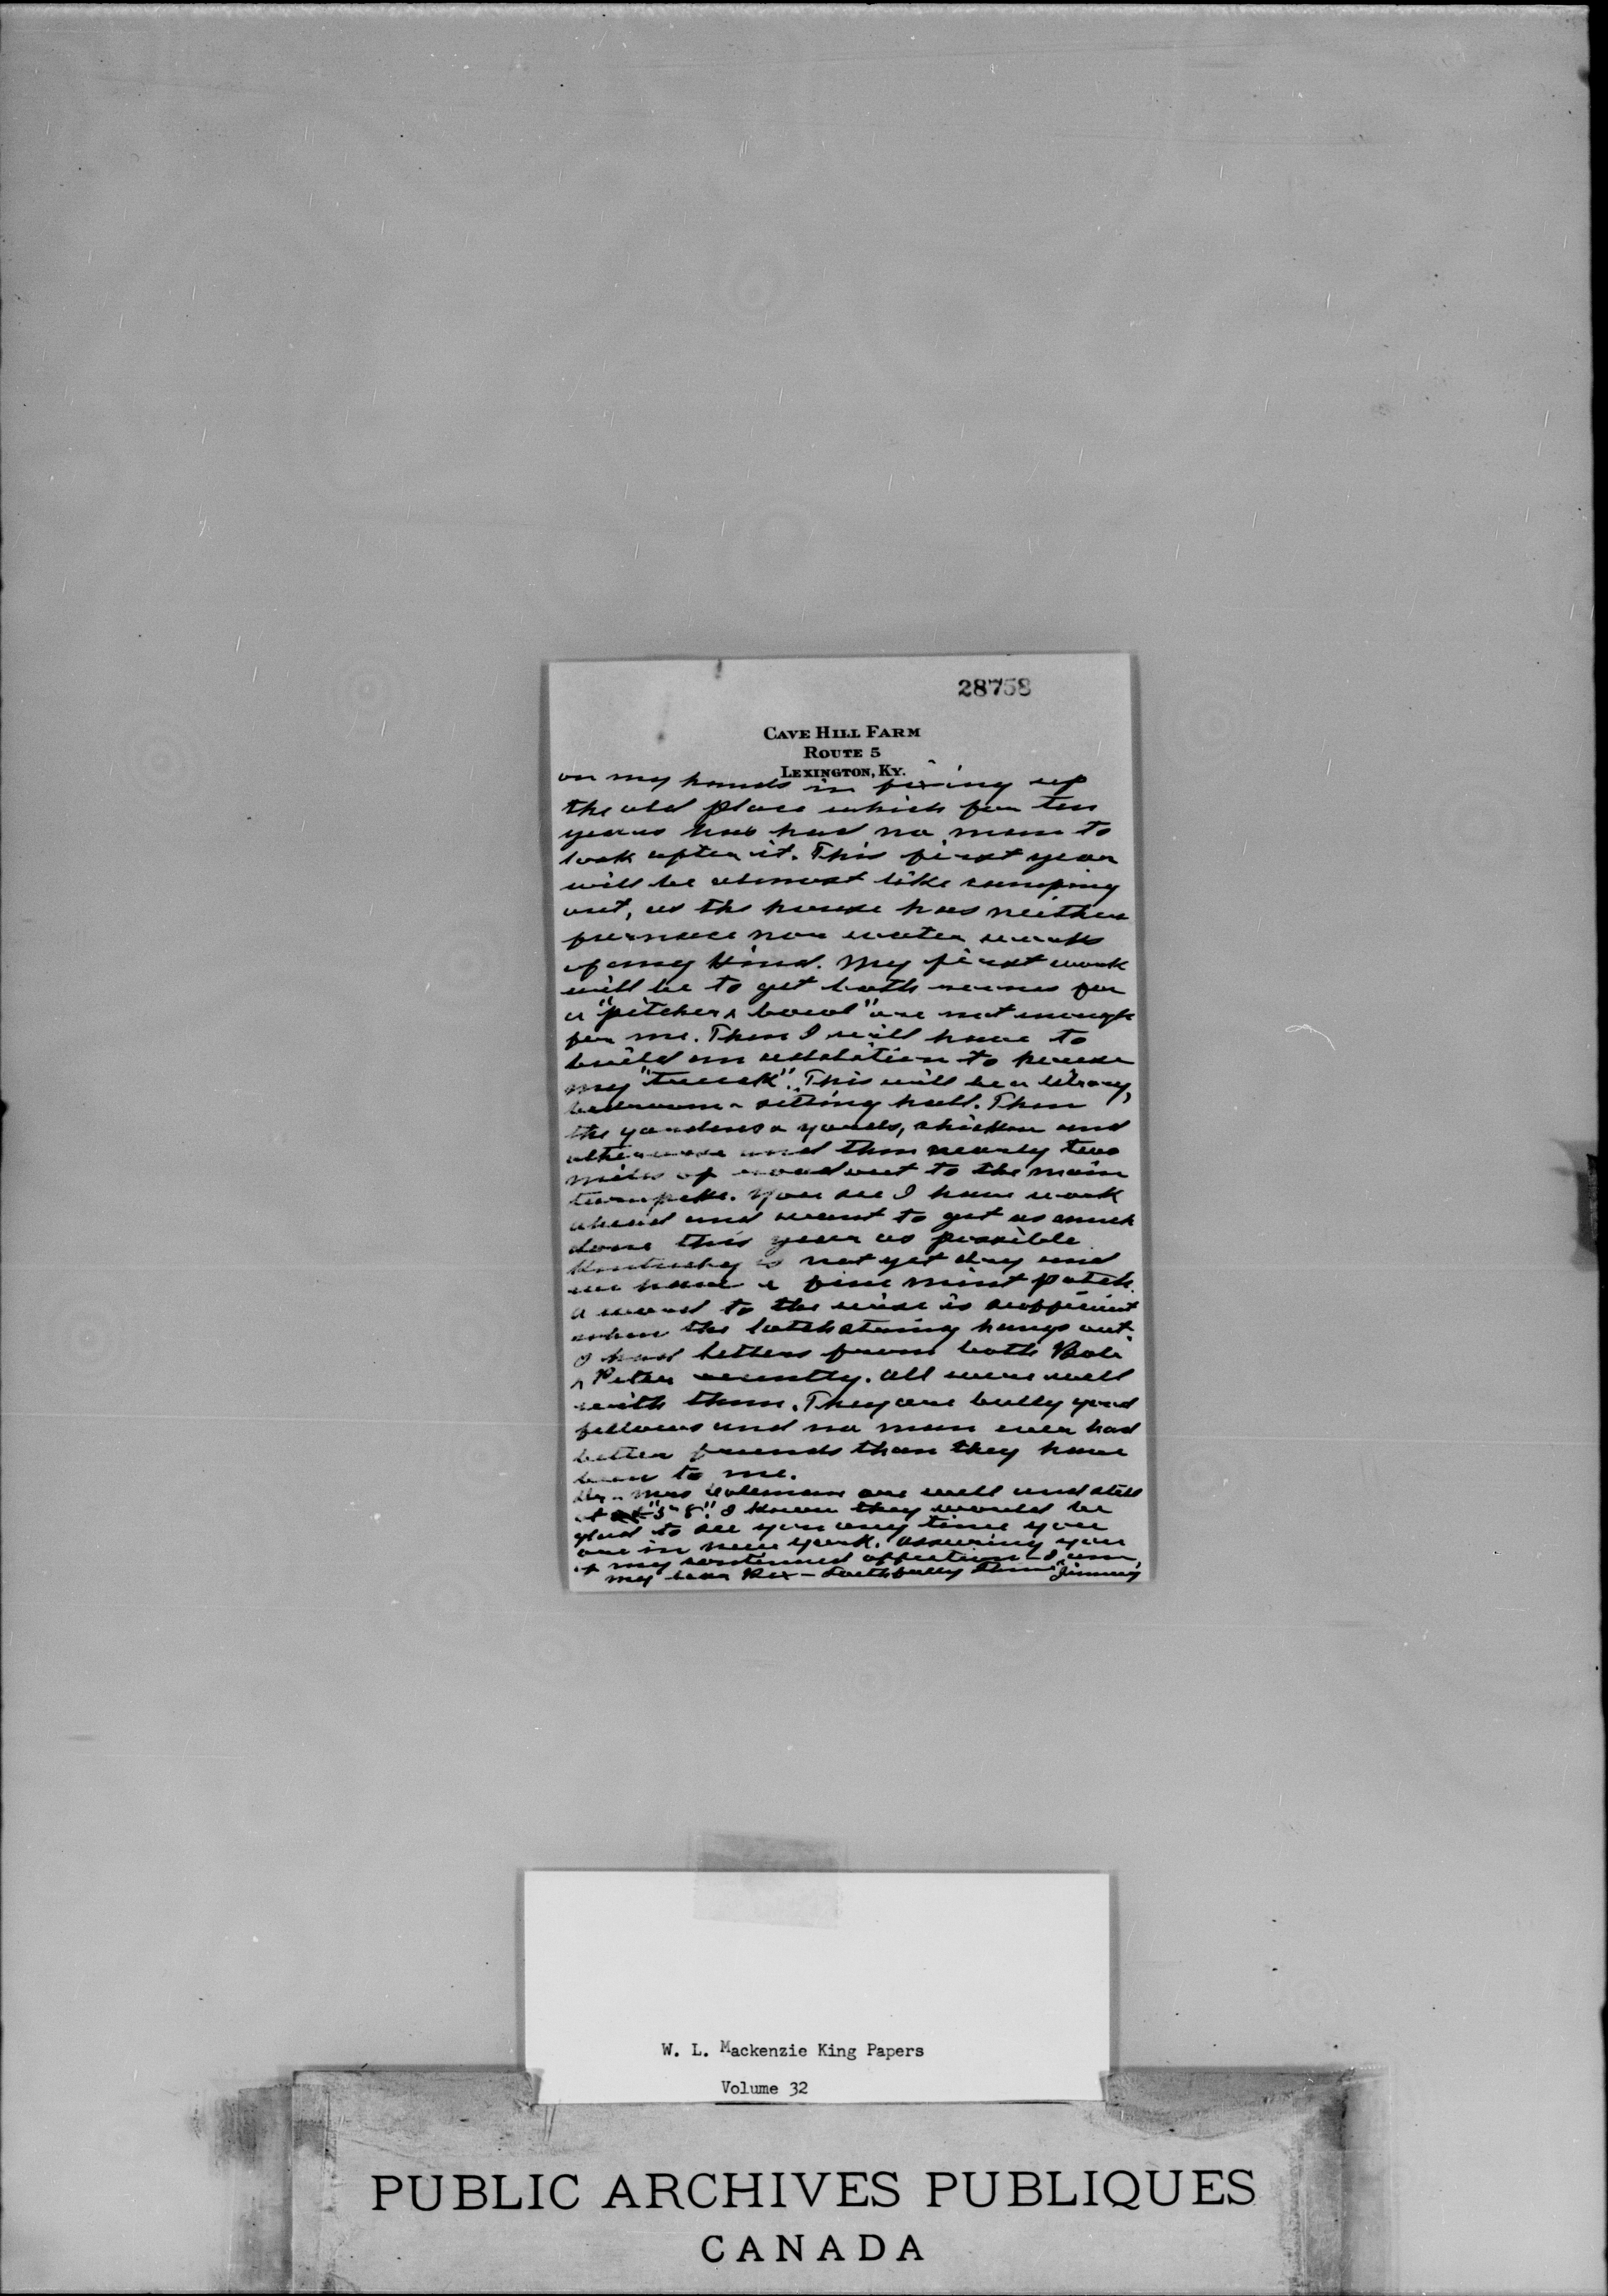 28758
CAVE HILL FARM
ROUTE 5
LEXINGTON, KY.
on my hands in fixing up
the old place which for ten
years has had no man to
look after it. This first year
will be almost like camping
out, as the house has neither
furnace nor water works
of any kind. My first work
will be to get bath rooms for
a "pitcher & bowl" are not enough
for me. Then I will have to
build an addition to house
my "truck". This will be a library,
bedroom & sitting hall. Then
the gardens & yards, chicken and
otherwise and then nearly two
miles of road out to the main
turnpike. You see I have work
ahead and want to get as much
done this year as possible
Kentucky is not yet dry and
we have a fine mint patch.
A word to the wise is sufficient
when the latch string hangs out.
I had letters from both Bob
& Peter recently. All were well
with them. They are bully good
fellows and no man ever had
better friends than they have
been to me.
Dr. & Mrs Coleman are well and still
at "58". I know they would be
glad to see you any time you
are in New York. Assuring you
of my continued affection - I am,
my dear Rex - Faithfully Thine "Jimmy"
W. L. Mackenzie King Papers
Volume 32
PUBLIC ARCHIVES PUBLIQUES
CANADA